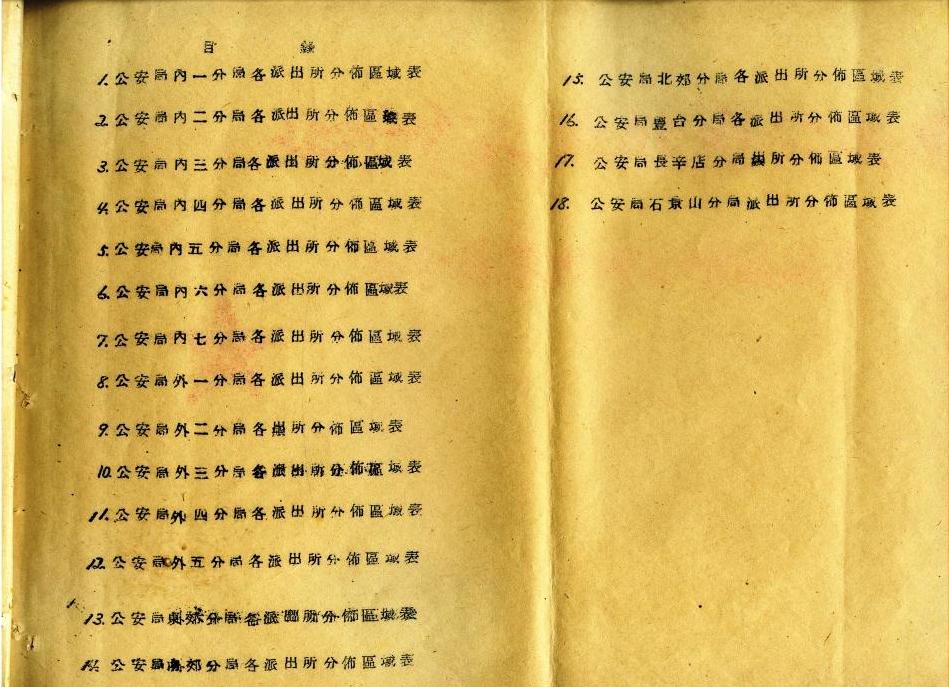 目 錄
1. 公安局內一分局各派出所分佈區域表
2. 公安局內二分局各派出所分佈區域表
3. 公安局內三分局各派出所分佈區域表
4. 公安局內四分局各派出所分佈區域表
5. 公安局內五分局各派出所分佈區域表
6. 公安局內六分局各派出所分佈區域表
7. 公安局內七分局各派出所分佈區域表
8. 公安局外一分局各派出所分佈區域表
9. 公安局外二分局各出所分佈區域表
10. 公安局外三分局各派出所分佈區域表
11. 公安局外四分局各派出所分佈區域表
12. 公安局外五分局各派出所分佈區域表
13. 公安局東郊分局各派出所分佈區域表
14. 公安局南郊分局各派出所分佈區域表
15. 公安局北郊分局各派出所分佈區域表
16. 公安局豐台分局各派出所分佈區域表
17. 公安局長辛店分局所分佈區域表
18. 公安局石景山分局派出所分佈區域表